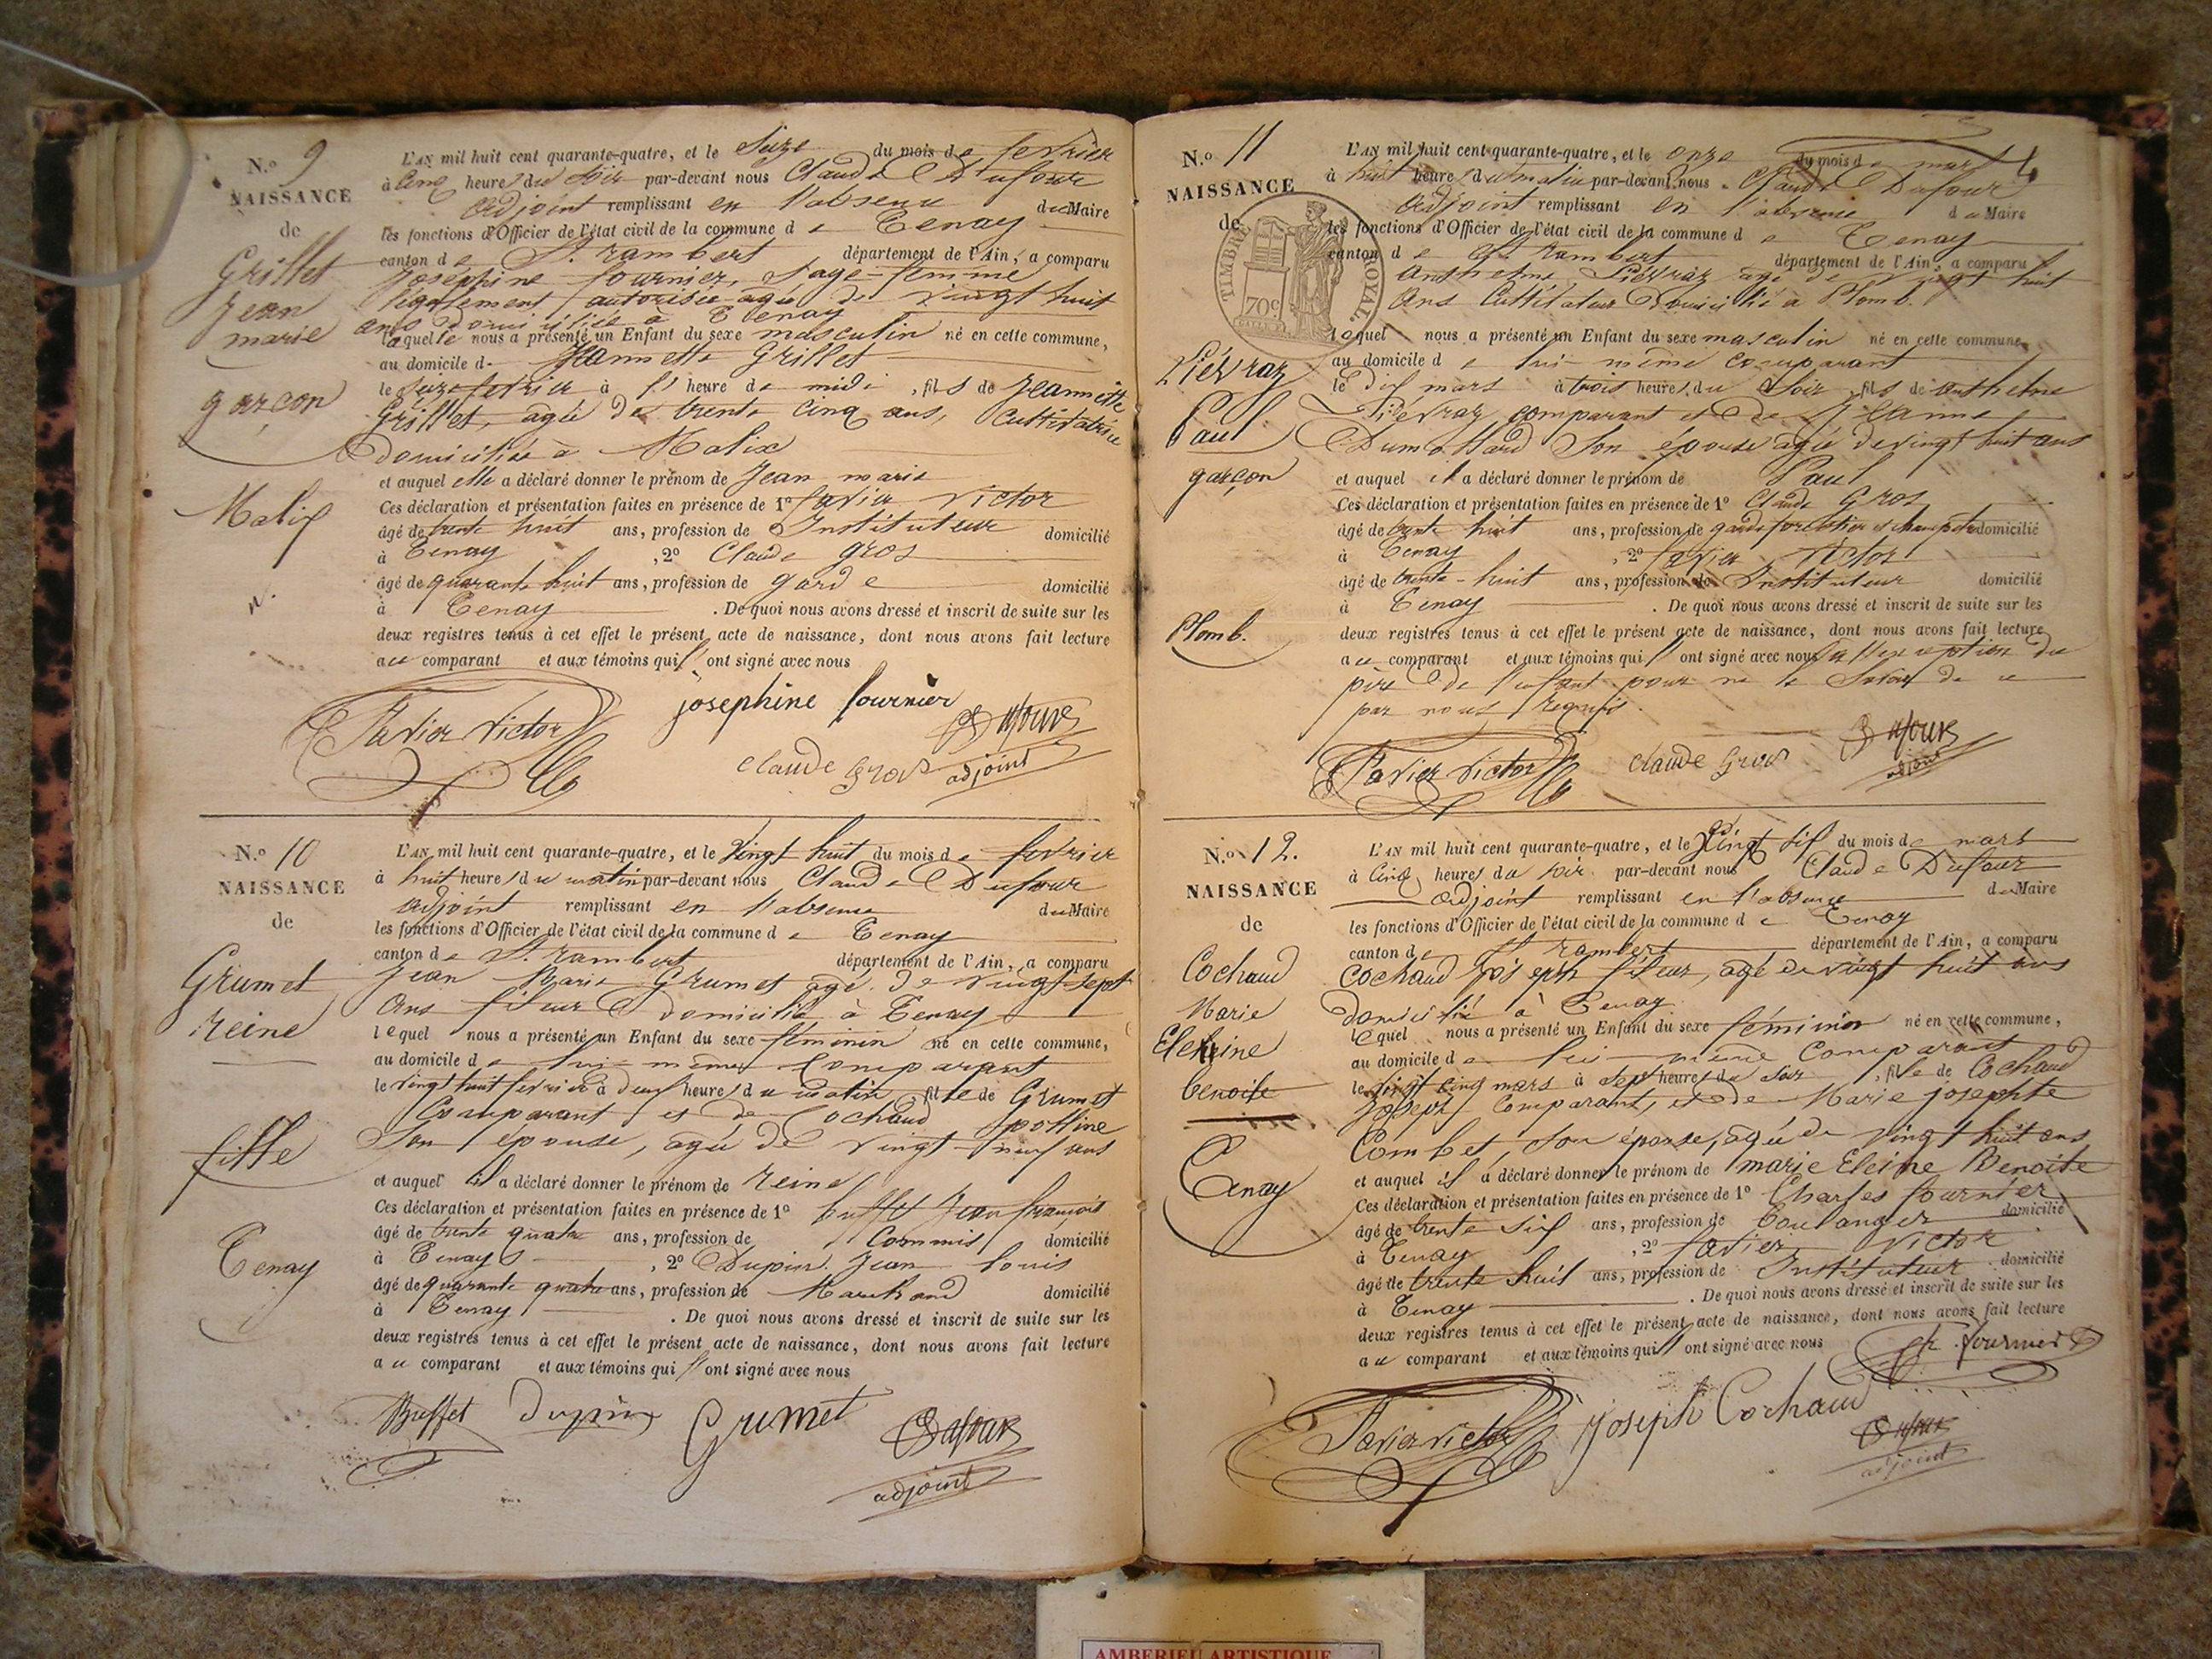 N.o 9
NAISSANCE
de
Grillet
Jean
marie
garçon
Malix
L'AN mil huit cent quarante-quatre, et le Seize du mois de fevrier
à Cinq heures du Soir par-devant nous Claude Dufour
adjoint remplissant en l'absence du Maire
les fonctions d'Officier de l'état civil de la commune de Tenay
canton de St. rambert département de l'Ain, a comparu
Joséphine fournier, Sage-femme
légalement autorisée agée de vingt huit
ans domiciliée à Tenay
laquelle nous a présenté un Enfant du sexe masculin né en cette commune,
au domicile de Jeannette Grillet
le Seize fevrier à l' heure de midi, fils de Jeannette
Grillet, agée de trente cinq ans, Cultivatrice
domiciliée à Malix
et auquel elle a déclaré donner le prénom de Jean marie
Ces déclaration et présentation faites en présence de 1º favier Victor
âgé de trente huit ans, profession de Instituteur domicilié
à Tenay, 2º Claude Gros
âgé de quarante huit ans, profession de garde domicilié
à Tenay. De quoi nous avons dressé et inscrit de suite sur les
deux registres tenus à cet effet le présent acte de naissance, dont nous avons fait lecture
au comparant et aux témoins qui l' ont signé avec nous
Favier Victor
josephine fournier
claude Gros
Dufour
adjoint
N.o 10
NAISSANCE
de
Grumet
reine
fille
Tenay
L'AN mil huit cent quarante-quatre, et le Vingt huit du mois de fevrier
à huit heures du matin par-devant nous Claude Dufour
adjoint remplissant en l'absence du Maire
les fonctions d'Officier de l'état civil de la commune de Tenay
canton de St. rambert département de l'Ain, a comparu
Jean Marie Grumet agé de vingt sept
Ans fileur domicilié à Tenay
lequel nous a présenté un Enfant du sexe féminin né en cette commune,
au domicile de lui même Comparant
le vingt huit fevrier à deux heures du matin, fille de Grumet
Comparant et de Cochaud
Son épouse, agée de vingt neuf ans
et auquel il a déclaré donner le prénom de reine
Ces déclaration et présentation faites en présence de 1º buffet Jean françois
âgé de trente quatre ans, profession de Commis domicilié
à Tenay, 2º Dupin Jean Louis
âgé de quarante quatre ans, profession de Marchand domicilié
à Tenay. De quoi nous avons dressé et inscrit de suite sur les
deux registres tenus à cet effet le présent acte de naissance, dont nous avons fait lecture
au comparant et aux témoins qui l' ont signé avec nous
Buffet
Dupin
Grumet
Dufour
adjoint
N.o 11
NAISSANCE
de
TIMBRE ROYAL
70c
Piévraz
Paul
garçon
Plomb.
4
L'AN mil huit cent quarante-quatre, et le onze du mois de mars
à huit heures du matin par-devant nous Claude Dufour
adjoint remplissant en l'absence du Maire
les fonctions d'Officier de l'état civil de la commune de Tenay
canton de St. rambert département de l'Ain, a comparu
Anthelme Piévraz agé de vingt huit
Ans Cultivateur domicilié à Plomb.
lequel nous a présenté un Enfant du sexe masculin né en cette commune,
au domicile de lui même comparant
le dix mars à trois heures du Soir, fils de anthelme
Piévraz comparant et de Jeanne
Dumollard Son épouse agée de vingt huit ans
et auquel il a déclaré donner le prénom de Paul
Ces déclaration et présentation faites en présence de 1º Claude Gros
âgé de trente huit ans, profession de garde forestier et champetre domicilié
à Tenay, 2º favier Victor
âgé de trente-huit ans, profession de Instituteur domicilié
à Tenay. De quoi nous avons dressé et inscrit de suite sur les
deux registres tenus à cet effet le présent acte de naissance, dont nous avons fait lecture
au comparant et aux témoins qui l' ont signé avec nous à l'exception du
père de l'enfant pour ne le Savoir de ce
par nous requis.
Favier Victor
claude Gros
Dufour
adjoint
N.o 12.
NAISSANCE
de
Cochaud
Marie
Eleine
benoite
Tenay
L'AN mil huit cent quarante-quatre, et le Vingt Six du mois de mars
à Cinq heures du soir par-devant nous Claude Dufour
adjoint remplissant en l'absence du Maire
les fonctions d'Officier de l'état civil de la commune de Tenay
canton de St rambert département de l'Ain, a comparu
Cochaud joseph fileur, agé de vingt huit ans
domicilié à Tenay
lequel nous a présenté un Enfant du sexe féminin né en cette commune,
au domicile de lui même Comparant
le vingt cinq mars à sept heures du soir, fille de Cochaud
Joseph Comparant, et de Marie josephte
Combet, son épouse, agée de vingt huit ans
et auquel il a déclaré donner le prénom de marie Eleine Benoite
Ces déclaration et présentation faites en présence de 1º Charles fournier
âgé de trente six ans, profession de boulanger domicilié
à Tenay, 2º favier Victor
âgé de trente huit ans, profession de Instituteur domicilié
à Tenay. De quoi nous avons dressé et inscrit de suite sur les
deux registres tenus à cet effet le présent acte de naissance, dont nous avons fait lecture
au comparant et aux témoins qui l' ont signé avec nous
ch. fournier
Favier victor
joseph Cochaud
Dufour
adjoint
AMBERIEU ARTISTIQUE